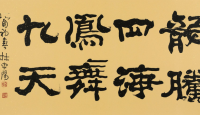 龍騰
四海
鳳舞
九天